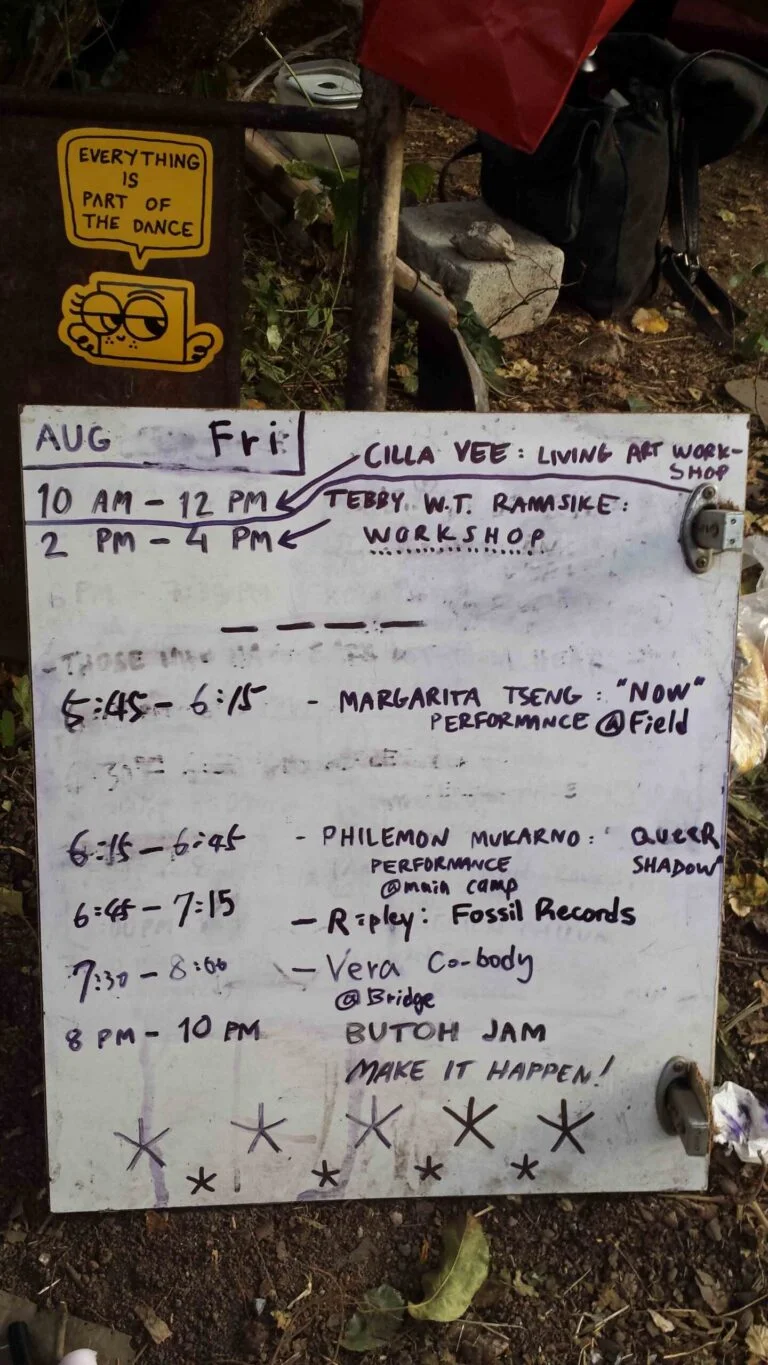 EVERYTHING
IS
PART OF
THE DANCE
AUG Fri
CILLA VEE: LIVING ART WORK-
SHOP
10 AM - 12 PM
TEBBY. W.T. RAMASIKE:
2 PM - 4 PM WORKSHOP
5:45 - 6:15 - MARGARITA TSENG: "NOW"
PERFORMANCE @ Field
6:15 - 6:45 - PHILEMON MUKARNO: "QUEER
PERFORMANCE SHADOW"
@main camp
6:45 - 7:15 - Ripley: Fossil Records
7:30 - 8:00 - Vera Co-body
@ Bridge
8 PM - 10 PM BUTOH JAM
MAKE IT HAPPEN!